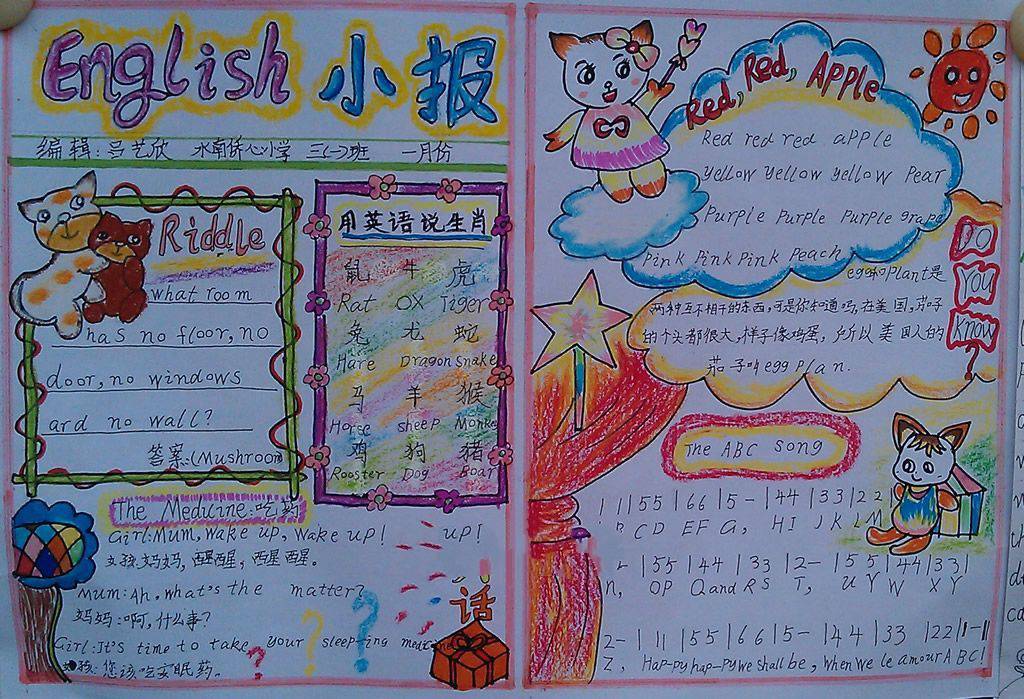 English 小报
编辑:吕艺欣 水南侨心小学 三(一)班 一月份
Riddle
what room
has no floor, no
door, no windows
ard no wall?
答案:(Mushroom
用英语说生肖
鼠 牛 虎
Rat OX Tiger
兔 龙 蛇
Hare Dragon snake
马 羊 猴
Horse sheep Monkey
鸡 狗 猪
Rooster Dog Boar
The Medicine:吃药
Girl:Mum, wake up, wake up! up!
女孩:妈妈,醒醒,醒醒.
Mum:Ah, what's the matter?
妈妈:啊,什么事?
Girl:It's time to take your sleep-ing medicine
女孩:您该吃安眠药。
话
Red, Red, APPLE
Red red red apple
yellow yellow yellow Pear
Purple Purple Purple grape
Pink Pink Pink Peach
DO
YOU
Know
?
egg和Plant是
两种互不相干的东西,可是你知道吗,在美国,茄子
的个头都很大,样子像鸡蛋,所以美国人的
茄子叫egg plan.
The ABC Song
1 1|55|66|5-|44|33|22
CD EF G, HI JK LM
n, OP Q and RS T, U V W X Y
5- 55|44|33|2-|55|44|33|
2-|11|55|66|5-|44|33|22|1-||
Z, Hap-py hap-py we shall be, When we le amour A B C!